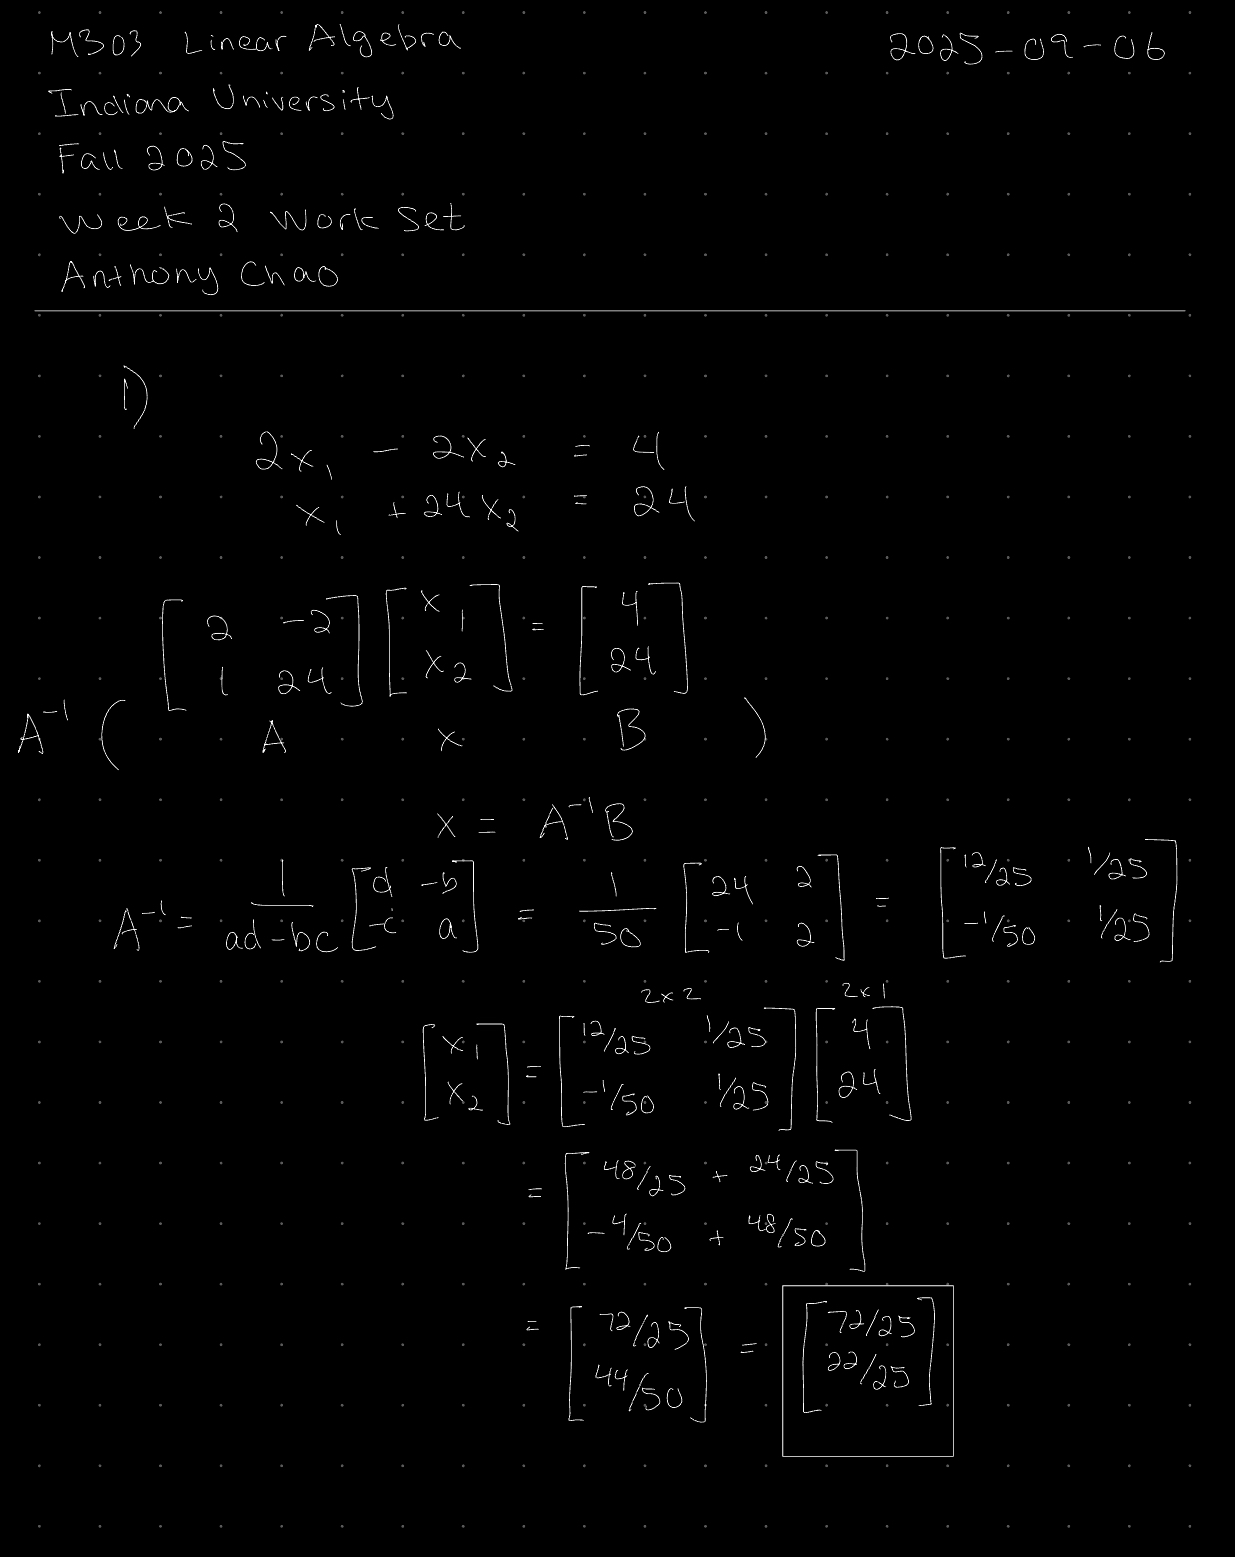 M303 Linear Algebra 2025-09-06
Indiana University
Fall 2025
Week 2 Work Set
Anthony Chao
1)
2x₁ - 2x₂ = 4
x₁ + 24x₂ = 24
[2 -2; 1 24] [x₁; x₂] = [4; 24]
A⁻¹ ( A x B )
x = A⁻¹B
A⁻¹ = 1/(ad-bc) [d -b; -c a] = 1/50 [24 2; -1 2] = [12/25 1/25; -1/50 1/25]
2x2 2x1
[x₁; x₂] = [12/25 1/25; -1/50 1/25] [4; 24]
= [48/25 + 24/25; -4/50 + 48/50]
= [72/25; 44/50] = [72/25; 22/25]